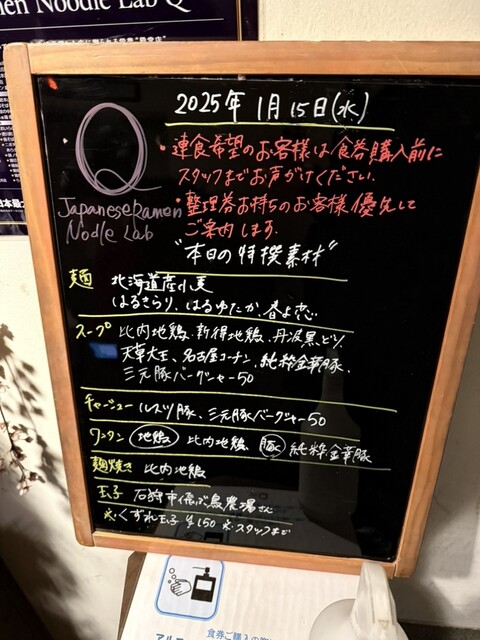 men Noodle Lab Q
2025年 1月 15日(水)
Q
Japanese Ramen
Noodle Lab
・連食希望のお客様は食券購入前に
スタッフまでお声がけください.
・整理券お持ちのお客様優先して
ご案内します.
"本日の特撰素材"
麺 北海道産小麦
はるきらり、はるゆたか、春よ恋
スープ 比内地鶏、新得地鶏、丹波黒どり
天草大王、名古屋コーチン、純粋金華豚、
三元豚バークシャー50
チャーシュー ルスツ豚、三元豚バークシャー50
ワンタン 地鶏 比内地鶏 豚 純粋金華豚
麹焼き 比内地鶏
玉子 石狩市 農場さん
※くずれ玉子 ¥150 ※スタッフまで
食券ご購入の際に